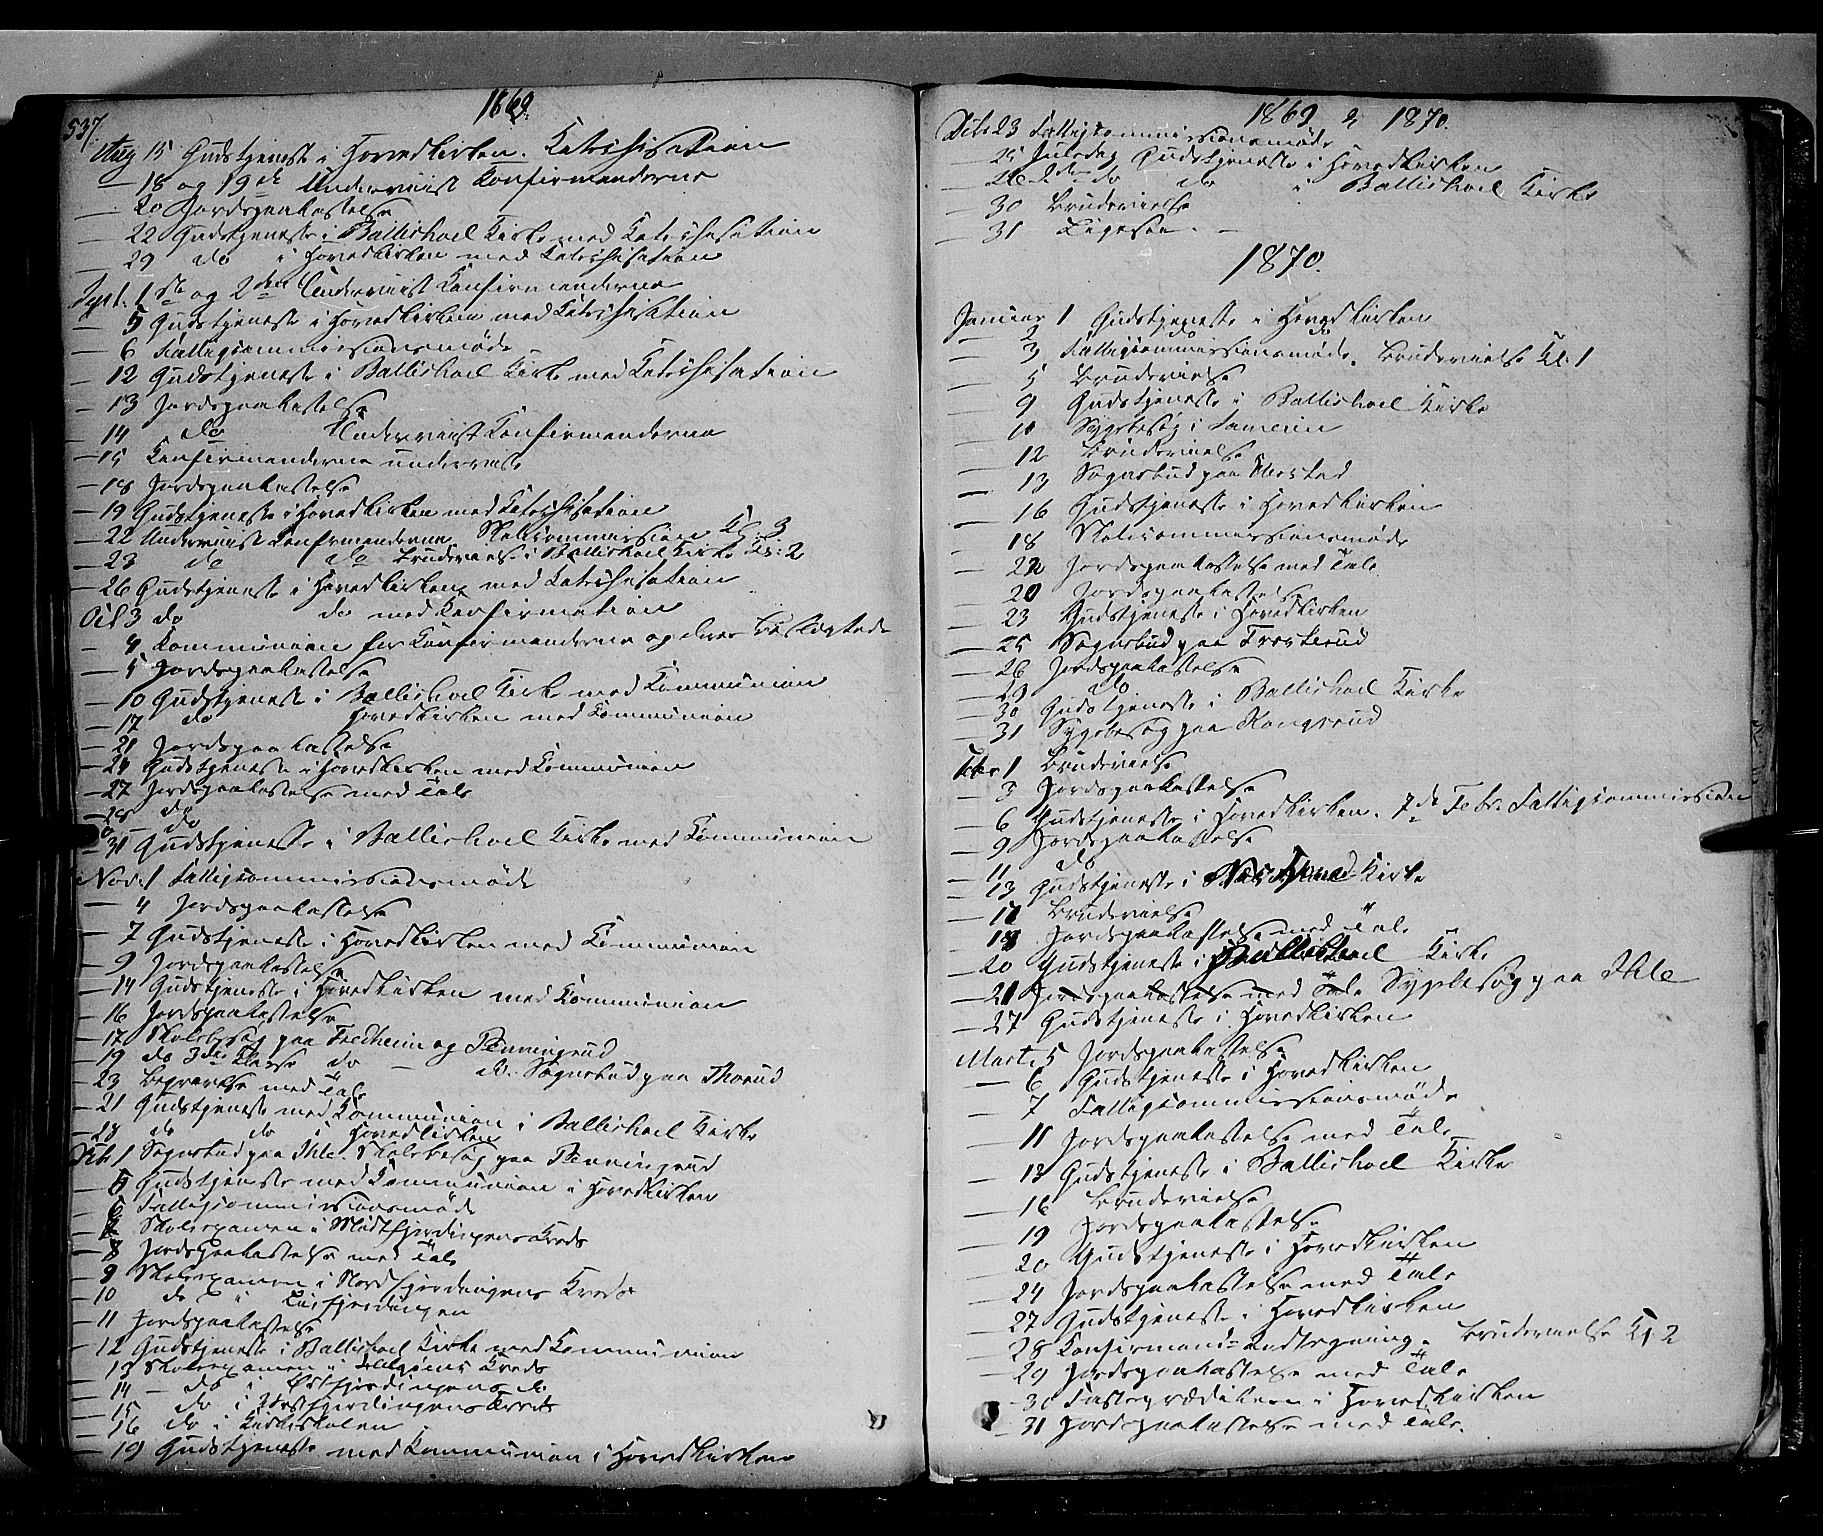 537.
1869.
Aug 15 Gudstjeneste i Hovedkirken. Katechisation
— 18 og 19de Underviist Konfirmanderne
— 20 Jordspaakastelse
— 22 Gudstjeneste i Ballishoel Kirke med Katechisation
— 29 do i Hovedkirken med Katechisation
Sept. 1ste og 2den Underviist Konfirmanderne
— 5 Gudstjeneste i Hovedkirken med Katechisation
— 6 Fattigcommissionsmøde
— 12 Gudstjeneste i Ballishoel Kirke med Katechisation
— 13 Jordspaakastelse
— 14 do Underviist Konfirmanderne
— 15 Konfirmanderne underviist
— 18 Jordspaakastelse
— 19 Gudstjeneste i Hovedkirken med Katechisation
— 22 Underviist Konfirmanderne Skolecommission Kl: 3
— 23 do do Brudevielse i Ballishoel Kirke Kl: 2
— 26 Gudstjeneste i Hovedkirken med Katechisation
Oct 3 do do med Konfirmation
— 4 Kommunion for Konfirmanderne og deres Beslægtede
— 5 Jordspaakastelse
— 10 Gudstjeneste i Ballishoel Kirke med Kommunion
— 17 do Hovedkirken med Kommunion
— 21 Jordspaakastelse
— 24 Gudstjeneste i Hovedkirken med Kommunion
— 27 Jordspaakastelse med Tale
— 28 do
— 31 Gudstjeneste i Ballishoel Kirke med Kommunion
Nov. 1 Fattigcommissionsmøde
— 4 Jordspaakastelse
— 7 Gudstjeneste i Hovedkirken med Kommunion
— 9 Jordspaakastelse
— 14 Gudstjeneste i Hovedkirken med Kommunion
— 16 Jordspaakastelse
— 17 Skolebesøg paa Fredheim og Penningrud
— 19 do 3die Klasse do — do. Sognebud paa Thorud
— 23 Begravelse med Tale
— 21 Gudstjeneste med Kommunion i Ballishoel Kirke
— 28 do do i Hovedkirken
Dcb 1 Sognebud paa Ihle. Skolebesøg paa Penningrud
— 5 Gudstjeneste med Kommunion i Hovedkirken
— 6 Fattigcommissionsmøde
— 7 Skoleexamen i Midtfjerdingens Kreds
— 8 Jordspaakastelse med Tale
— 9 Skoleexamen i Nordfjerdingens Kreds
— 10 do i fjerdingen
— 11 Jordspaakastelse
— 12 Gudstjeneste i Ballishoel Kirke med Kommunion
— 13 Skoleexamen i Kreds
— 14 — do i Østfjerdingens do.
— 15 do i Vestfjerdingens Kreds
— 16 do i Kirkeskolen
— 19 Gudstjeneste med Kommunion i Hovedkirken
1869 & 1870.
Dcb: 23 Fattigcommissionsmøde
— 25 Juledag Gudstjeneste i Hovedkirken
— 26 2den do do " Ballishoel Kirke
— 30 Brudevielse
— 31 Ligesaa. —
1870.
Januar 1 Gudstjeneste i Hovedkirken
— 2 do do
— 3 Fattigcommissionsmøde. Brudevielse Kl: 1
— 5 Brudevielse
— 9 Gudstjeneste i Ballishoel Kirke
— 10 Sygebesøg i
— 12 Brudevielse
— 13 Sognebud paa
— 16 Gudstjeneste i Hovedkirken
— 18 Skolecommissionsmøde
— 22 Jordspaakastelse med Tale
— 20 Jordspaakastelse
— 23 Gudstjeneste i Hovedkirken
— 25 Sognebud paa
— 26 Jordspaakastelse
— 29 do
— 30 Gudstjeneste i Ballishoel Kirke
— 31 Sygebesøg paa Kongsrud
Febr 1 Brudevielse
— 3 Jordspaakastelse
— 6 Gudstjeneste i Hovedkirken. 7de Febr: Fattigcommission
— 9 Jordspaakastelse
— 11 do
— 13 Gudstjeneste i Kirke
— 17 Brudevielse
— 18 Jordspaakastelse med Tale
— 20 Gudstjeneste i Ballishoel Kirke
— 21 Jordspaakastelse med Tale Sygebesøg paa Ihle
— 27 Gudstjeneste i Hovedkirken
Marts 5 Jordspaakastelse
— 6 Gudstjeneste i Hovedkirken
— 7 Fattigcommissionsmøde
— 11 Jordspaakastelse med Tale
— 13 Gudstjeneste i Ballishoel Kirke
— 16 Brudevielse
— 19 Jordspaakastelse
— 20 Gudstjeneste i Hovedkirken
— 24 Jordspaakastelse med Tale
— 27 Gudstjeneste i Hovedkirken
— 28 Konfirmand-Indtegning. Brudevielse Kl 2
— 29 Jordspaakastelse med Tale
— 30 Fasteprædiken i Hovedkirken
— 31 Jordspaakastelse med Tale.